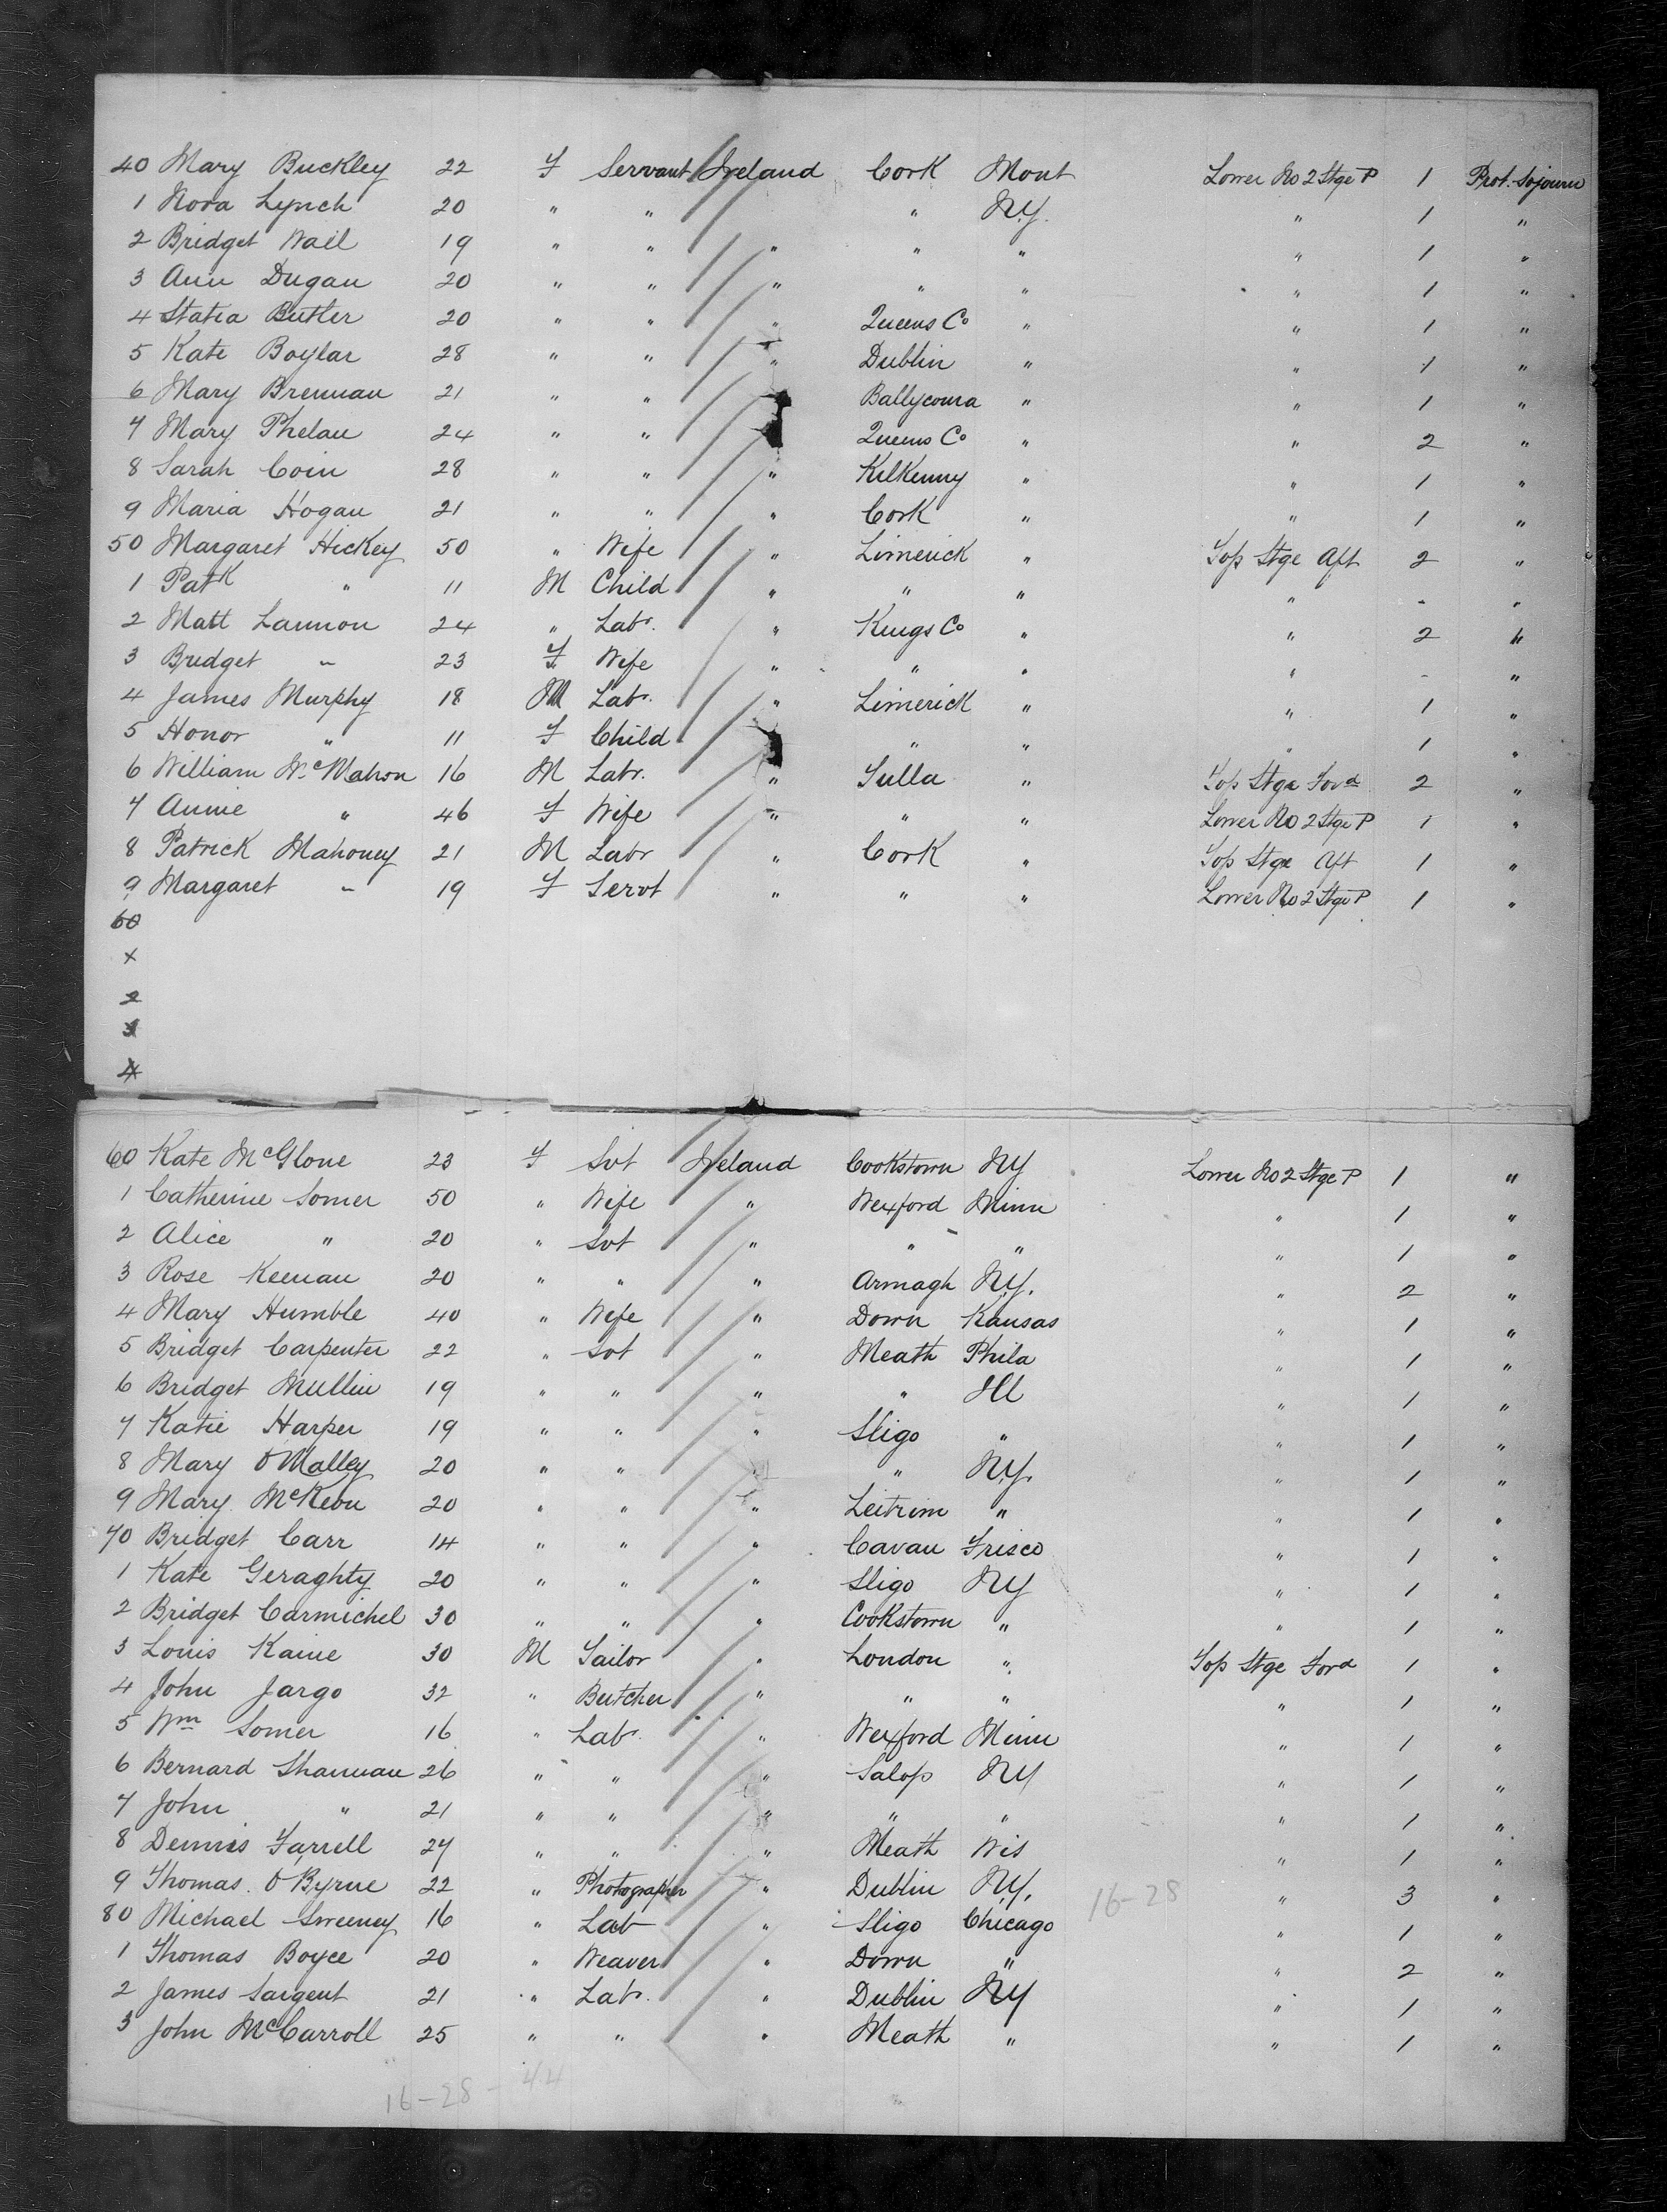 40 Mary Buckley 22 F Servant Ireland Cork Mont Lower No 2 Stge P 1 Prot. Sojourn
1 Nora Lynch 20 " " " N.Y. " 1 "
2 Bridget Wall 19 " " " " " " 1 "
3 Ann Dugan 20 " " " " " " 1 "
4 Statia Butler 20 " " " Queens Co " " 1 "
5 Kate Boylar 28 " " " Dublin " " 1 "
6 Mary Brennan 21 " " Ballycoura " " 1 "
7 Mary Phelan 24 " " Queens Co " " 2 "
8 Sarah Coin 28 " " " Kilkenny " " 1 "
9 Maria Hogan 21 " " " Cork " " 1 "
50 Margaret Hickey 50 " Wife " Limerick " Top Stge Aft 2 "
1 Patk " 11 M Child " " " " - "
2 Matt Lannon 24 " Labr. " Kings Co " " 2 "
3 Bridget " 23 F Wife " " " " - "
4 James Murphy 18 M Labr. " Limerick " " 1 "
5 Honor " 11 F Child " " " 1 "
6 William McMahon 16 M Labr. " Tulla " Top Stge Ford 2 "
7 Annie " 46 F Wife " " " Lower No 2 Stge P 1 "
8 Patrick Mahoney 21 M Labr " Cork " Top Stge Aft 1 "
9 Margaret " 19 F Servt " " " Lower No 2 Stge P 1 "
60
x
2
3
4
60 Kate McGlone 23 F Svt Ireland Cookstown NY Lower No 2 Stge P 1 "
1 Catherine Somer 50 " Wife " Wexford Minn " 1 "
2 Alice " 20 " Svt " " " " 1 "
3 Rose Keenan 20 " " " Armagh N.Y. " 2 "
4 Mary Humble 40 " Wife " Down Kansas " 1 "
5 Bridget Carpenter 22 " Svt " Meath Phila " 1 "
6 Bridget Mullin 19 " " " " Ill " 1 "
7 Katie Harper 19 " " " Sligo " " 1 "
8 Mary O'Malley 20 " " " " N.Y. " 1 "
9 Mary McKeon 20 " " " Leitrim " " 1 "
70 Bridget Carr 14 " " " Cavan Frisco " 1 "
1 Kate Geraghty 20 " " " Sligo NY " 1 "
2 Bridget Carmichel 30 " " " Cookstown " " 1 "
3 Louis Kaine 30 M Tailor " London " Top Stge Ford 1 "
4 John Jargo 32 " Butcher " " " " 1 "
5 Wm Somer 16 " Labr " Wexford Minn " 1 "
6 Bernard Shannan 26 " " " Salop NY " 1 "
7 John " 21 " " " " " " 1 "
8 Dennis Farrell 24 " " " Meath Wis " 1 "
9 Thomas O'Byrne 22 " Photographer " Dublin N.Y. 16-28 " 3 "
80 Michael Sweeney 16 " Lab " Sligo Chicago " 1 "
1 Thomas Boyce 20 " Weaver " Down " " 2 "
2 James Sargent 21 " Labr. " Dublin NY " 1 "
3 John McCarroll 25 " " " Meath " " 1 "
16-28-44